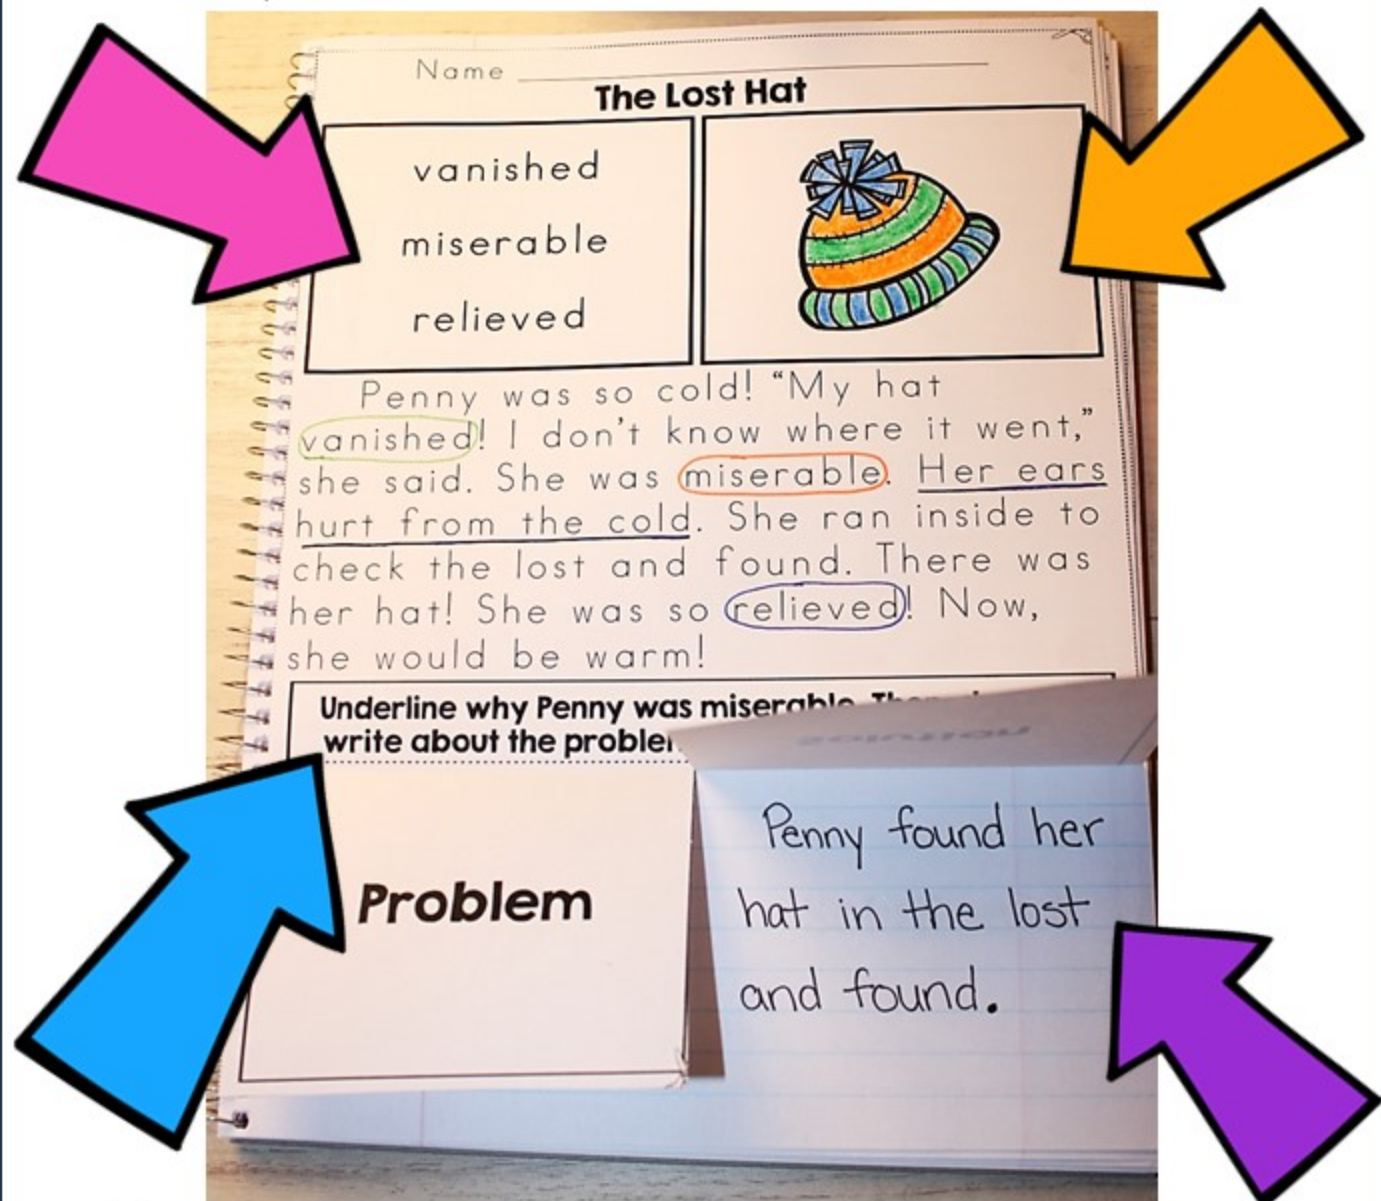 Name
The Lost Hat
vanished
miserable
relieved
Penny was so cold! “My hat
vanished! I don’t know where it went,”
she said. She was miserable. Her ears
hurt from the cold. She ran inside to
check the lost and found. There was
her hat! She was so relieved! Now,
she would be warm!
Underline why Penny was miserable.
write about the
Problem
Solution
Penny found her
hat in the lost
and found.